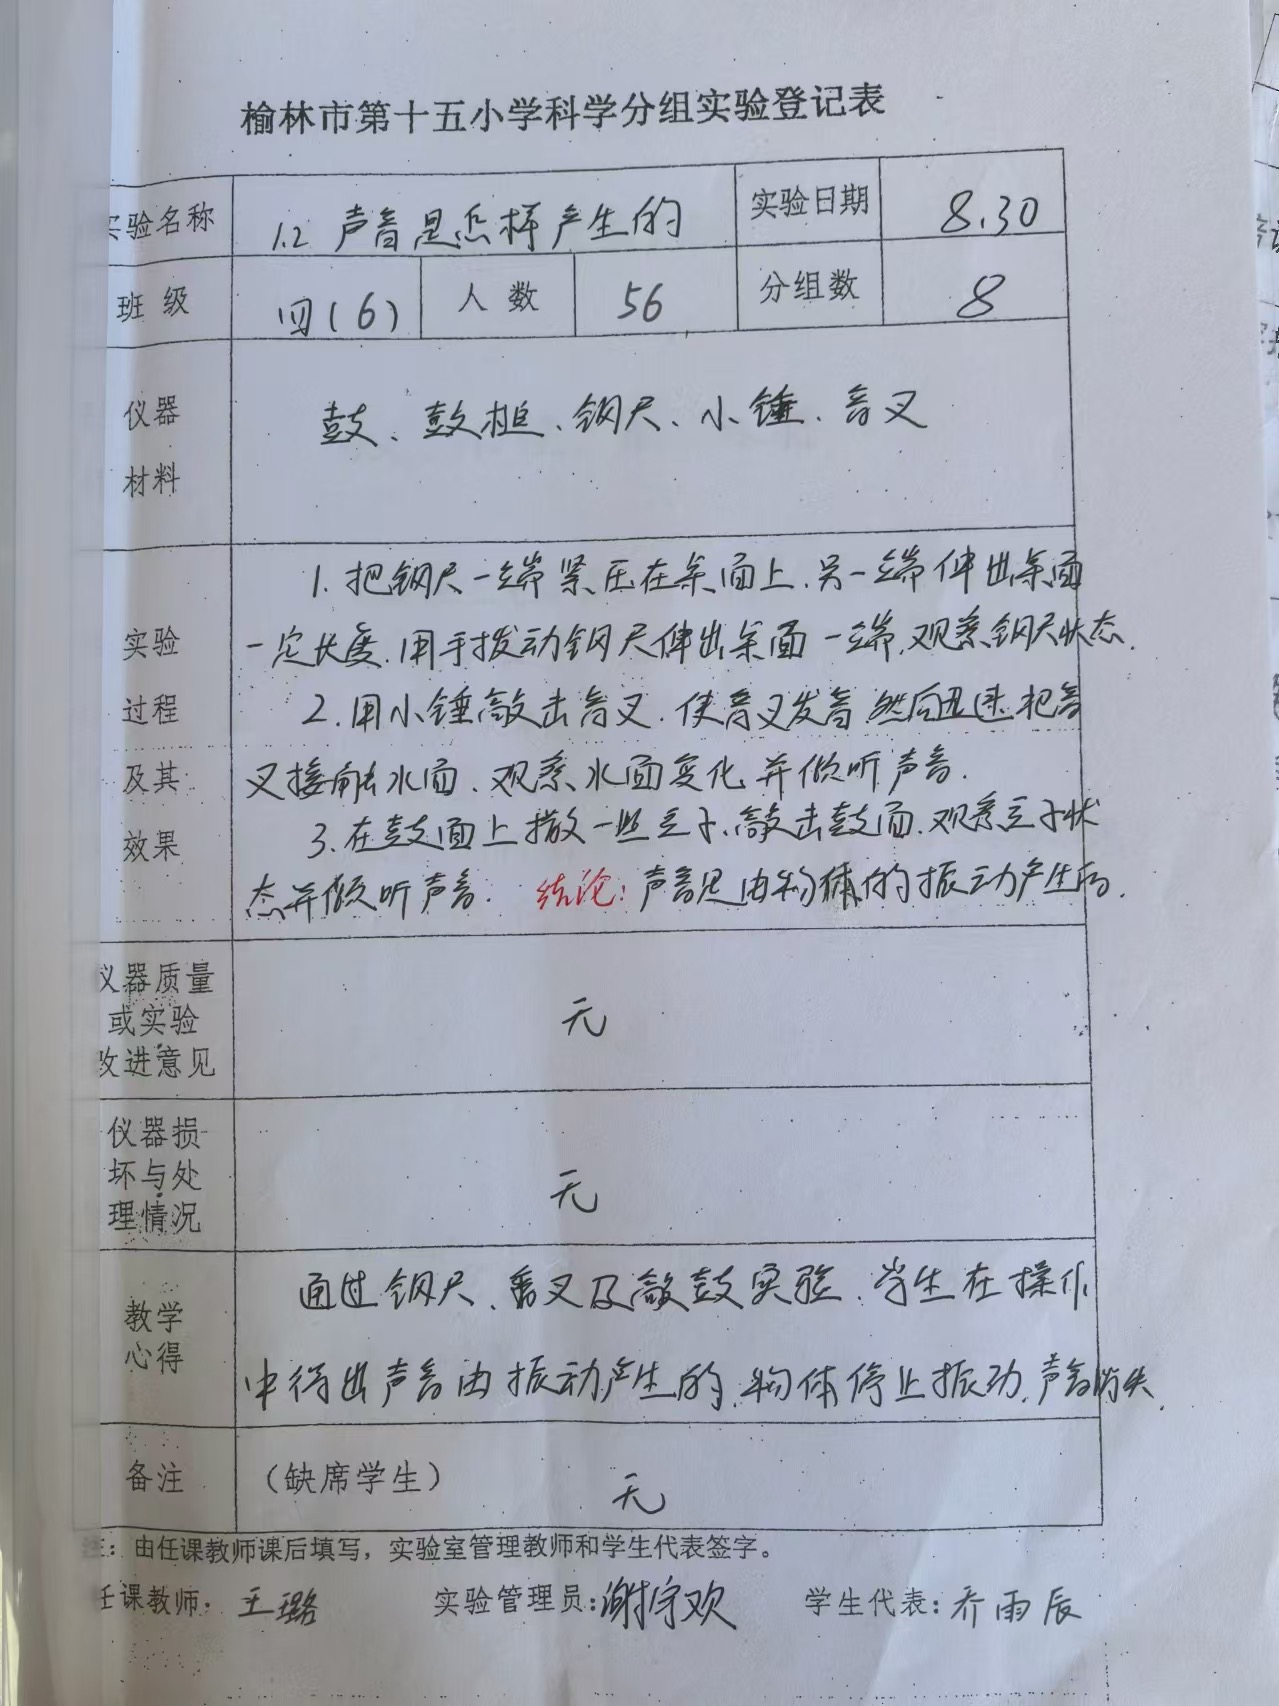 榆林市第十五小学科学分组实验登记表
实验名称 1.2 声音是怎样产生的 实验日期 8.30
班级 四(6) 人数 56 分组数 8
仪器 鼓、鼓槌、钢尺、小锤、音叉
材料
1.把钢尺一端紧压在桌面上.另一端伸出桌面
实验 一定长度.用手拨动钢尺伸出桌面一端,观察钢尺状态.
过程 2.用小锤敲击音叉.使音叉发音.然后迅速把音
及其 叉接触水面.观察水面变化,并倾听声音.
效果 3.在鼓面上撒一些豆子.敲击鼓面.观察豆子状
态并倾听声音. 结论:声音是由物体的振动产生的.
仪器质量
或实验 无
改进意见
仪器损
坏与处 无
理情况
通过钢尺、音叉及敲鼓实验.学生在操作
教学
心得
中得出声音由振动产生的.物体停止振动.声音消失.
备注 (缺席学生) 无
注:由任课教师课后填写,实验室管理教师和学生代表签字。
任课教师:王璐 实验管理员:谢宇欢 学生代表:乔雨辰